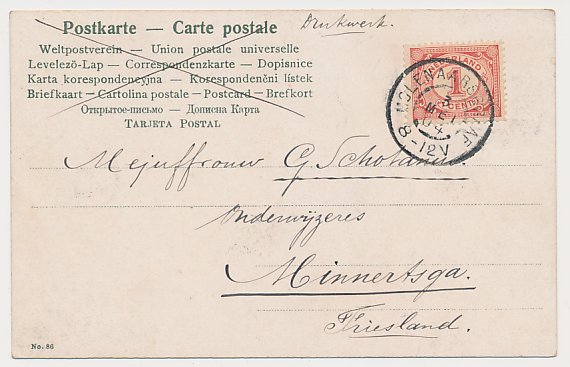 Postkarte — Carte postale
Drukwerk.
Weltpostverein — Union postale universelle
Levelezö-Lap — Correspondenzkarte — Dopisnice
Karta korespondencyjna — Korespondenčni lístek
Briefkaart — Cartolina postale — Postcard — Brefkort
Открытое-письмо — Дописна Карта
TARJETA POSTAL
NEDERLAND
1
CENT
MOLENAARSGRAAF
3
MEI
04
8-12V
Mejuffrouw G. Schotanus
Onderwijzeres
Minnertsga.
Friesland.
No. 86